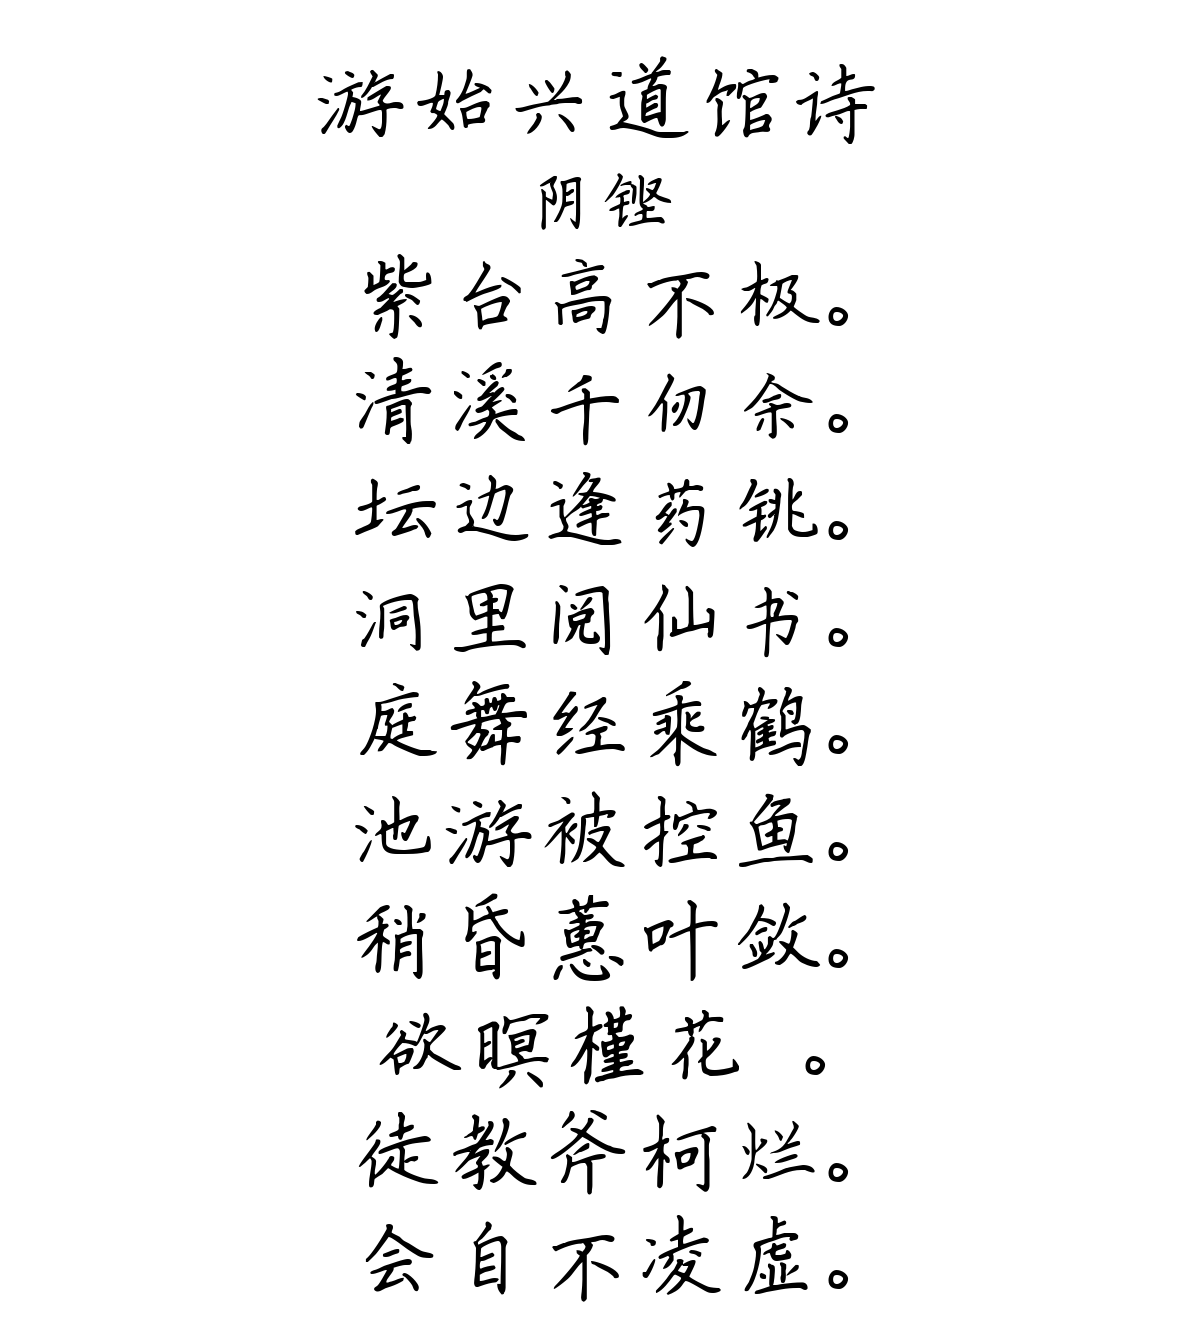 游始兴道馆诗
阴铿
紫台高不极。
清溪千仞余。
坛边逢药铫。
洞里阅仙书。
庭舞经乘鹤。
池游被控鱼。
稍昏蕙叶敛。
欲暝槿花 。
徒教斧柯烂。
会自不凌虚。